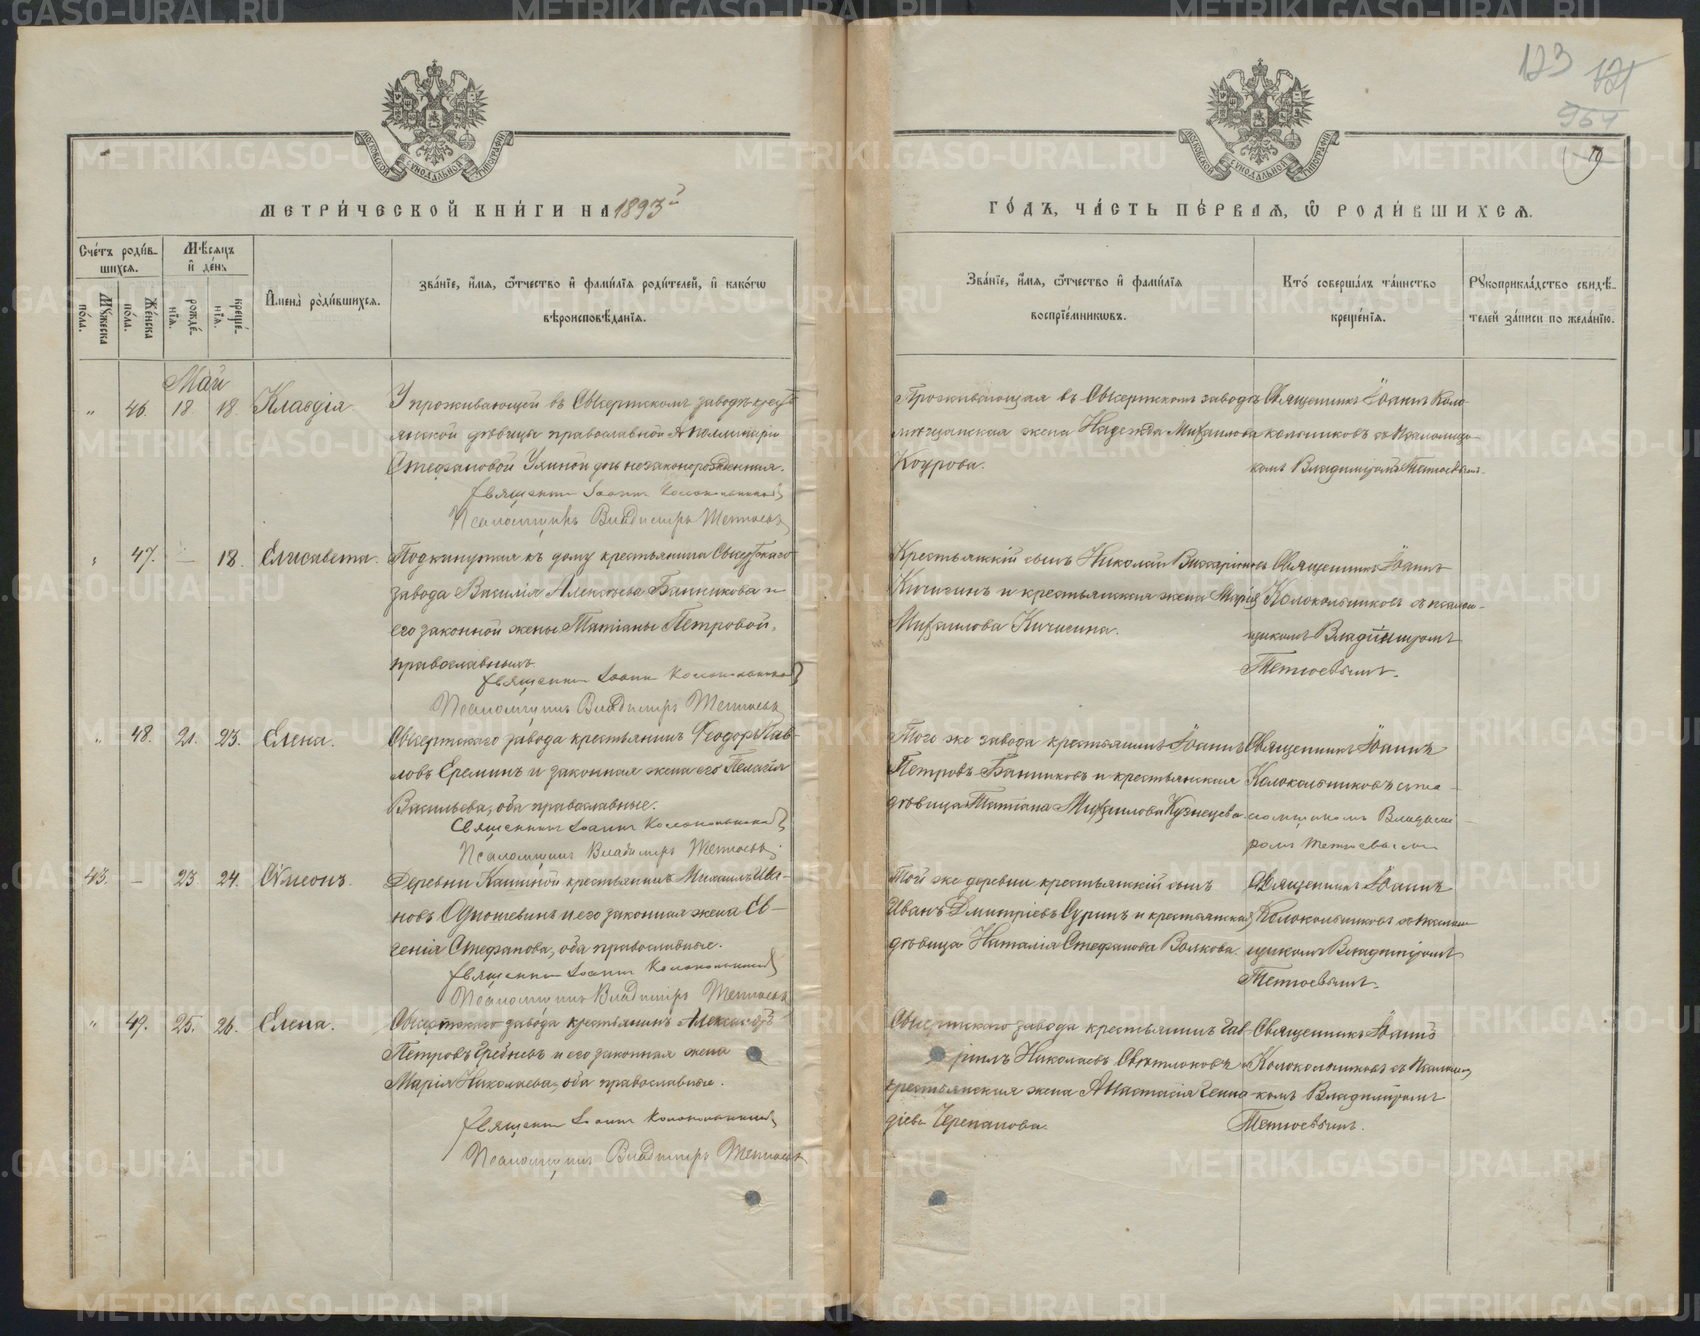 METRIKI.GASO-URAL.RU
123 121
954
79
МОСКОВСКОЙ СУНОДАЛЬНОЙ ТИПОГРАФІИ
МЕТРИ́ЧЕСКОЙ КНИ́ГИ НА 1893й
ГО́ДЪ, ЧА́СТЬ ПЕ́РВАЯ, Ѽ РОДИ́ВШИХСЯ.
Сче́тъ роди́в-
шихся.
Мѣ́сяцъ
и҆ де́нь
Му́жеска по́ла.
Же́нска по́ла.
рожде́нія.
креще́нія.
И҆мена̀ роди́вшихся.
Зва́ніе, и҆́мя, ѻ҆́тчество и҆ фами́лія роди́телей, и҆ како́гѡ
вѣроисповѣ́данія.
Зва́ніе, и҆́мя, ѻ҆́тчество и҆ фами́лія
воспріе́мникѡвъ.
Кто̀ соверша́лъ та́инство
креще́нія.
Рꙋкоприкла́дство свидѣ́-
телей за́писи по жела́нію.
Май
" 46. 18 18 Клавдія
У проживающей въ Сысертскомъ заводѣ крестъ
янской дѣвицы православной Аполинаріи
Стефановой Уляиной дочь незаконорожденная.
Священникъ Іоаннъ Колокольниковъ
Псаломщикъ Владимиръ Тетюевъ
Проживающая въ Сысертскомъ заводѣ
мѣщанская жена Надежда Михаилова
Коурова.
Священникъ Іоаннъ Коло-
кольниковъ съ псаломщи-
комъ Владиміромъ Тетюевымъ.
" 47. — 18. Елисавета.
Подкинутая къ дому крестьянина Сысертскаго
завода Василія Алексѣева Банникова и
его законной жены Татіаны Петровой,
православныхъ.
Священникъ Іоаннъ Колокольниковъ
Псаломщикъ Владимиръ Тетюевъ
Крестьянскій сынъ Николай Виссаріоновъ
Кичигинъ и крестьянская жена Марія
Михаилова Кичигина.
Священникъ Іоаннъ
Колокольниковъ съ псалом-
щикомъ Владиміромъ
Тетюевымъ.
" 48. 21. 23. Елена.
Сысертскаго завода крестьянинъ Ѳеодоръ Пав-
ловъ Ереминъ и законная жена его Пелагія
Васильева, оба православные.
Священникъ Іоаннъ Колокольниковъ
Псаломщикъ Владимиръ Тетюевъ
Того же завода крестьянинъ Іоаннъ
Петровъ Банниковъ и крестьянская
дѣвица Татіана Михаилова Кузнецова
Священникъ Іоаннъ
Колокольниковъ съ пса-
ломщикомъ Владими-
ромъ Тетюевымъ
43. — 23. 24. Сѵмеонъ.
Деревни Кашиной крестьянинъ Михаилъ Ива-
новъ и его законная жена Ев-
генія Стефанова, оба православные.
Священникъ Іоаннъ Колокольниковъ
Псаломщикъ Владимиръ Тетюевъ
Той же деревни крестьянскій сынъ
Иванъ Димитріевъ Суринъ и крестьянская
дѣвица Наталія Стефанова Волкова.
Священникъ Іоаннъ
Колокольниковъ съ псалом-
щикомъ Владиміромъ
Тетюевымъ.
" 49. 25. 26. Елена.
Сысертскаго завода крестьянинъ Александръ
Петровъ Гребневъ и его законная жена
Марія Николаева, оба православные.
Священникъ Іоаннъ Колокольниковъ
Псаломщикъ Владимиръ Тетюевъ
Сысертскаго завода крестьянинъ Гав-
ріилъ Николаевъ Свѣтлоковъ и
крестьянская жена Анастасія Генна-
діева Черепанова.
Священникъ Іоаннъ
Колокольниковъ съ псаломщи-
комъ Владиміромъ
Тетюевымъ.